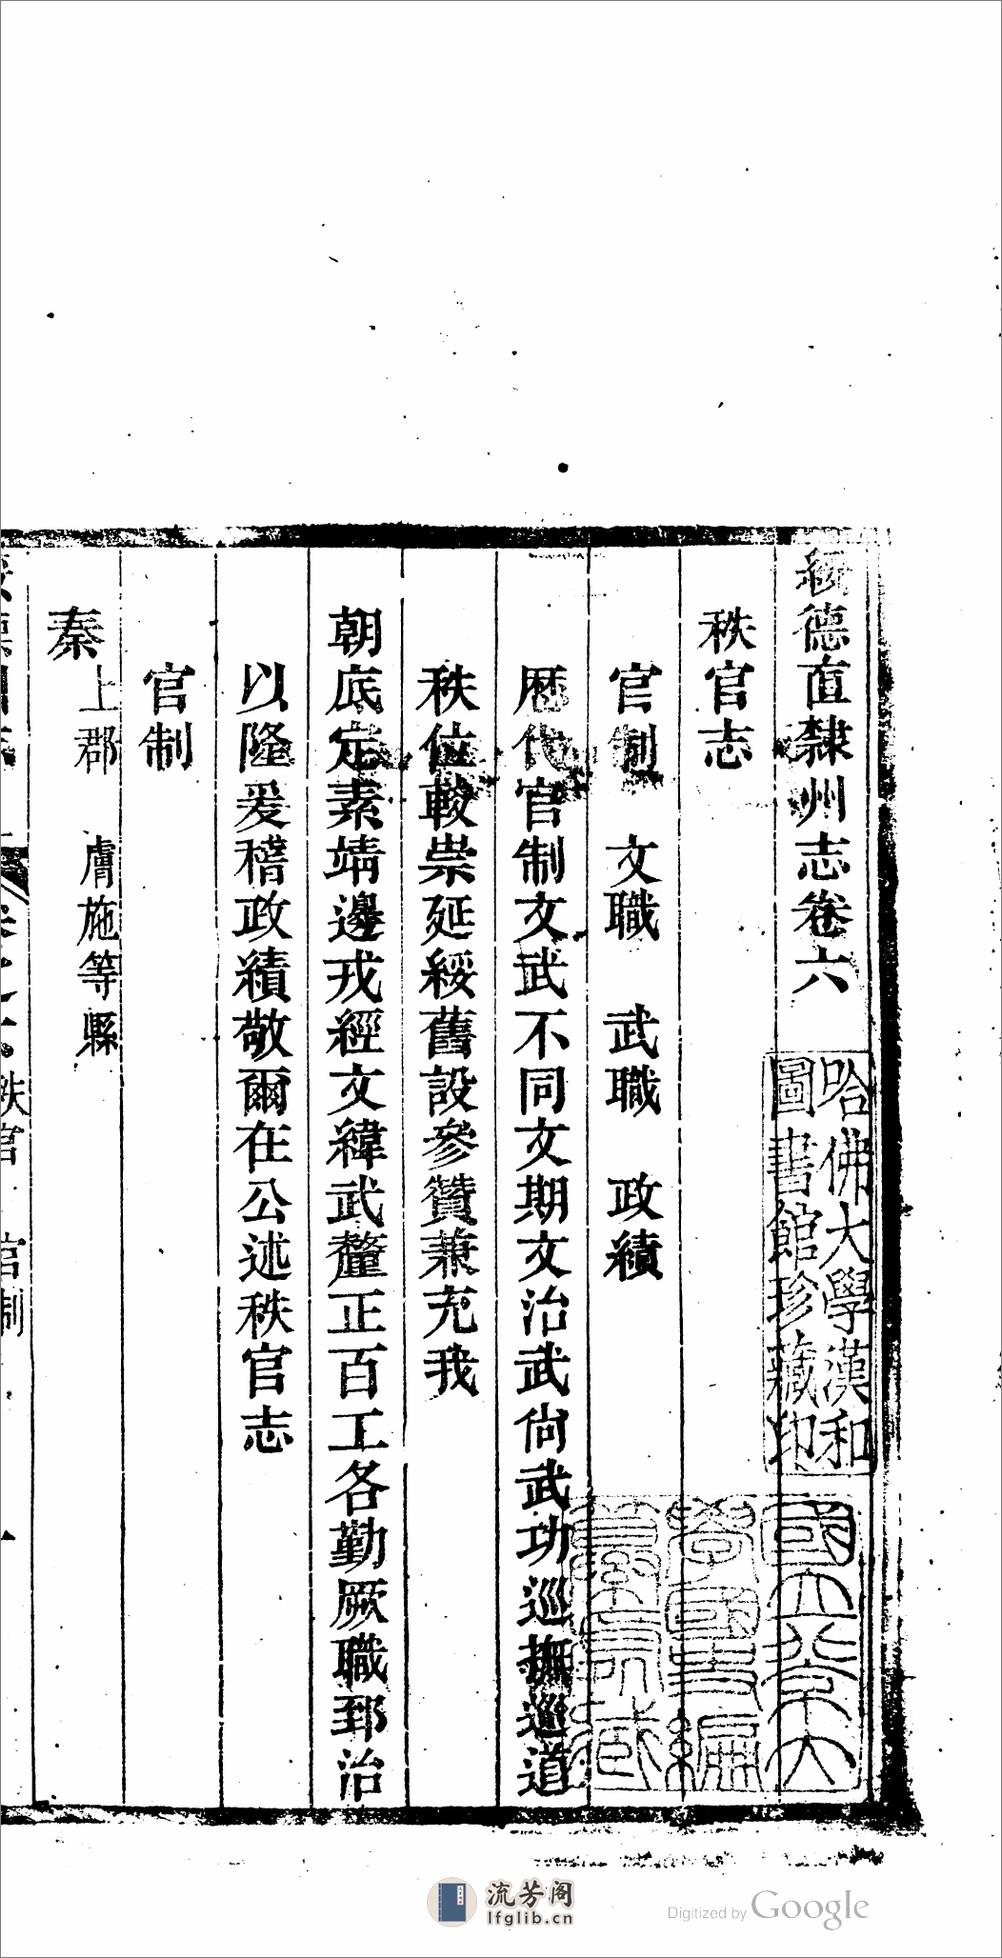 綏德直隸州志卷六
秩官志
官制　文職　武職　政績
歷代官制文武不同文期文治武尙武功巡撫巡道
秩位較崇延綏舊設參贊兼充我
朝底定綦靖邊戎經文緯武釐正百工各勤厥職郅治
以隆爰稽政績敬爾在公述秩官志
官制
秦 上郡　膚施等縣
秩官 官制
哈佛大學漢和
圖書館珍藏印
國立北京大
學國史編
纂處藏
流芳阁
lfglib.cn
Digitized by Google